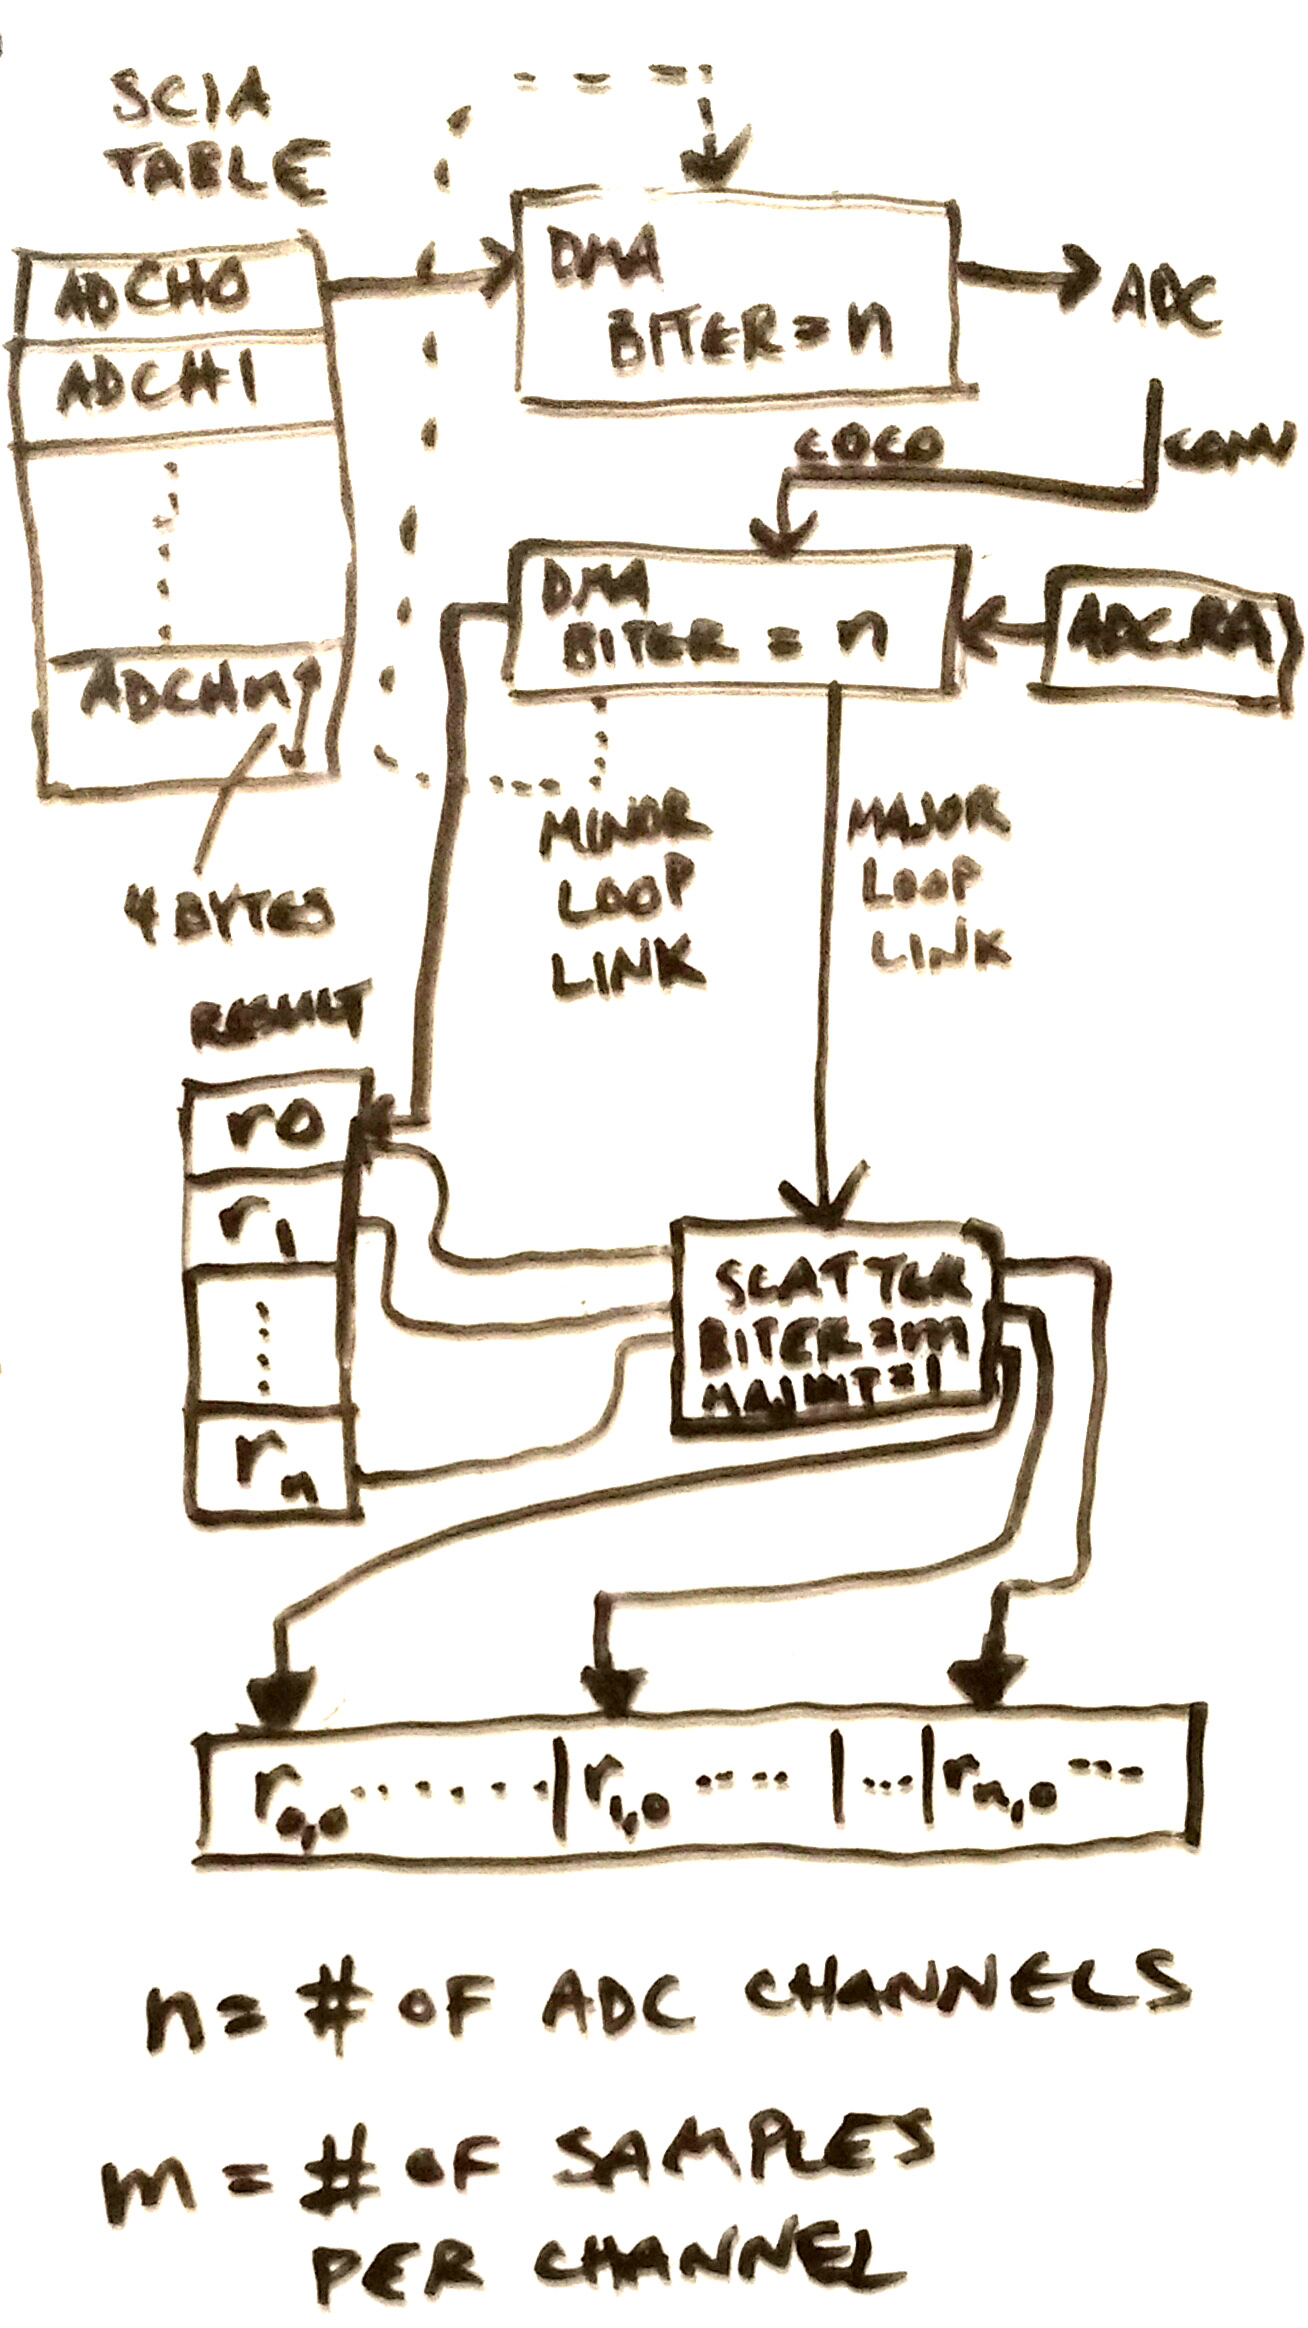 SC1A
TABLE
ADCH0
ADCH1
ADCHn
4 BYTES
DMA
BITER = n
ADC
COCO
CONV
DMA
BITER = n
ADC_RA
MINOR
LOOP
LINK
MAJOR
LOOP
LINK
RESULT
r0
r1
rn
SCATTER
BITER=m
MAJINT=1
r0,0 ....... | r1,0 .... |...| rn,0 ...
n = # OF ADC CHANNELS
m = # OF SAMPLES
PER CHANNEL